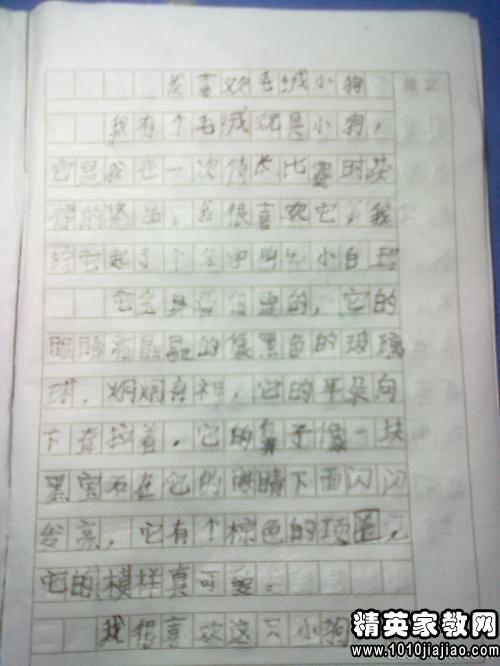 我喜欢毛绒小狗
我有个毛绒玩具小狗，
它是我在一次特长比赛时获
得的奖品，我很喜欢它，我
给它起了个名字叫作小白
它全身雪白雪白的，它的
眼睛亮晶晶的像黑色的玻璃
球，炯炯有神，它的耳朵向
下耷拉着，它的鼻子像一块
黑宝石在它的眼睛下面闪闪
发亮，它有个棕色的项圈，
它的模样真可爱。
我很喜欢这只小狗
精英家教网
www.1010jiajiao.com